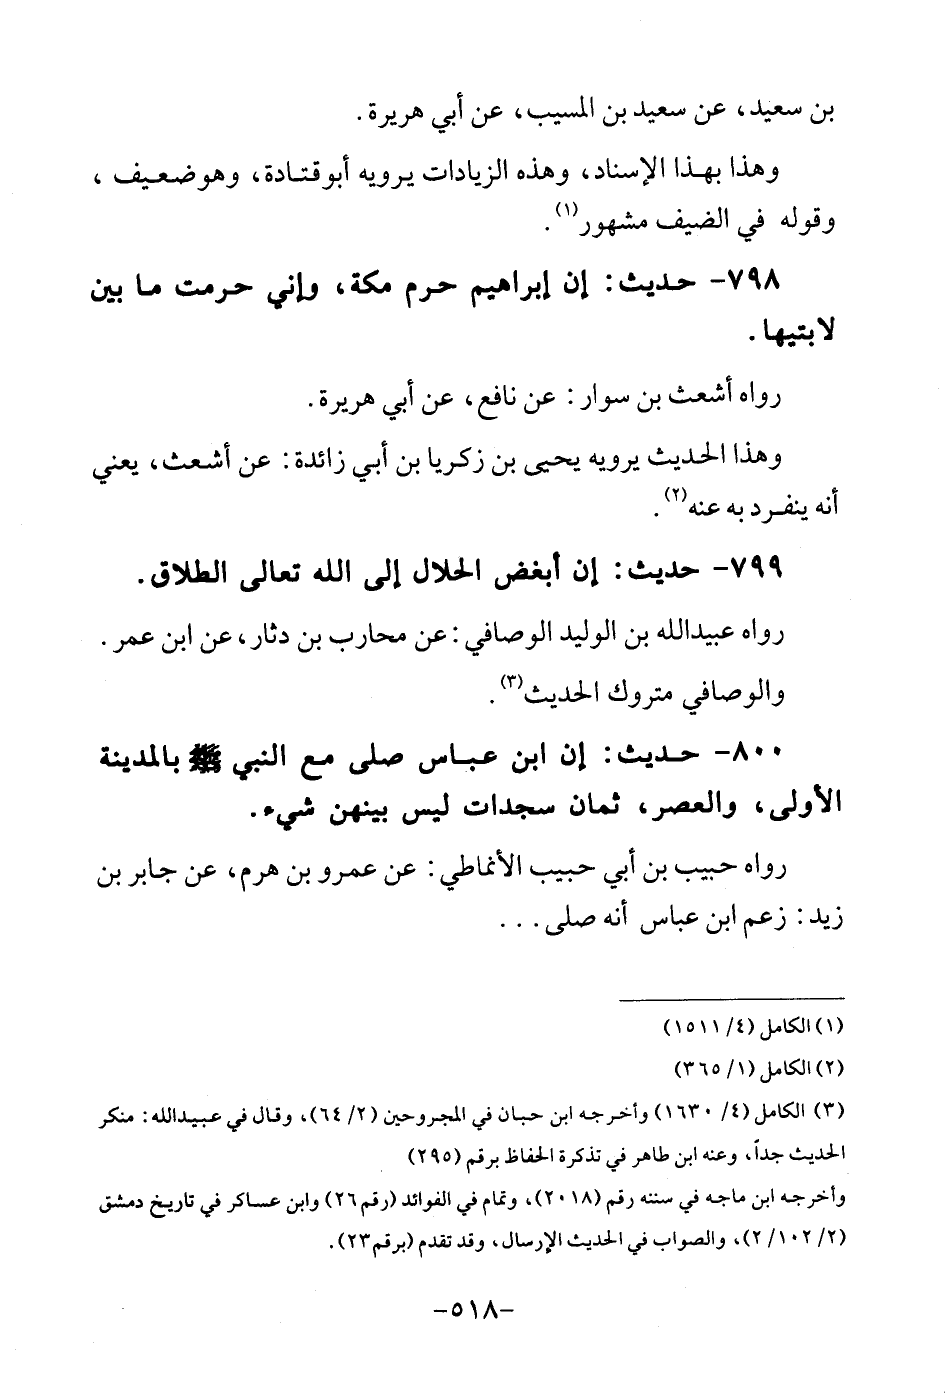 بن سعيد، عن سعيد بن المسيب، عن أبي هريرة.
وهذا بهذا الإسناد، وهذه الزيادات يرويه أبو قتادة، وهو ضعيف،
وقوله في الضيف مشهور(١).
٧٩٨- حديث: إن إبراهيم حرم مكة، وإني حرمت ما بين
لابتيها.
رواه أشعث بن سوار: عن نافع، عن أبي هريرة.
وهذا الحديث يرويه يحيى بن زكريا بن أبي زائدة: عن أشعث، يعني
أنه ينفرد به عنه(٢).
٧٩٩- حديث: إن أبغض الحلال إلى الله تعالى الطلاق.
رواه عبيدالله بن الوليد الوصافي: عن محارب بن دثار، عن ابن عمر.
والوصافي متروك الحديث(٣).
٨٠٠- حديث: إن ابن عباس صلى مع النبي ﷺ بالمدينة
الأولى، والعصر، ثمان سجدات ليس بينهن شيء.
رواه حبيب بن أبي حبيب الأنماطي: عن عمرو بن هرم، عن جابر بن
زيد: زعم ابن عباس أنه صلى...
(١) الكامل (٤/ ١٥١١)
(٢) الكامل (١/ ٣٦٥)
(٣) الكامل (٤/ ١٦٣٠) وأخرجه ابن حبان في المجروحين (٢/ ٦٤)، وقال في عبيدالله: منكر
الحديث جداً، وعنه ابن طاهر في تذكرة الحفاظ برقم (٢٩٥)
وأخرجه ابن ماجه في سننه رقم (٢٠١٨)، وتمام في الفوائد (رقم٢٦) وابن عساكر في تاريخ دمشق
(٢/ ١٠٢/ ٢)، والصواب في الحديث الإرسال، وقد تقدم (برقم٢٣).
-٥١٨-